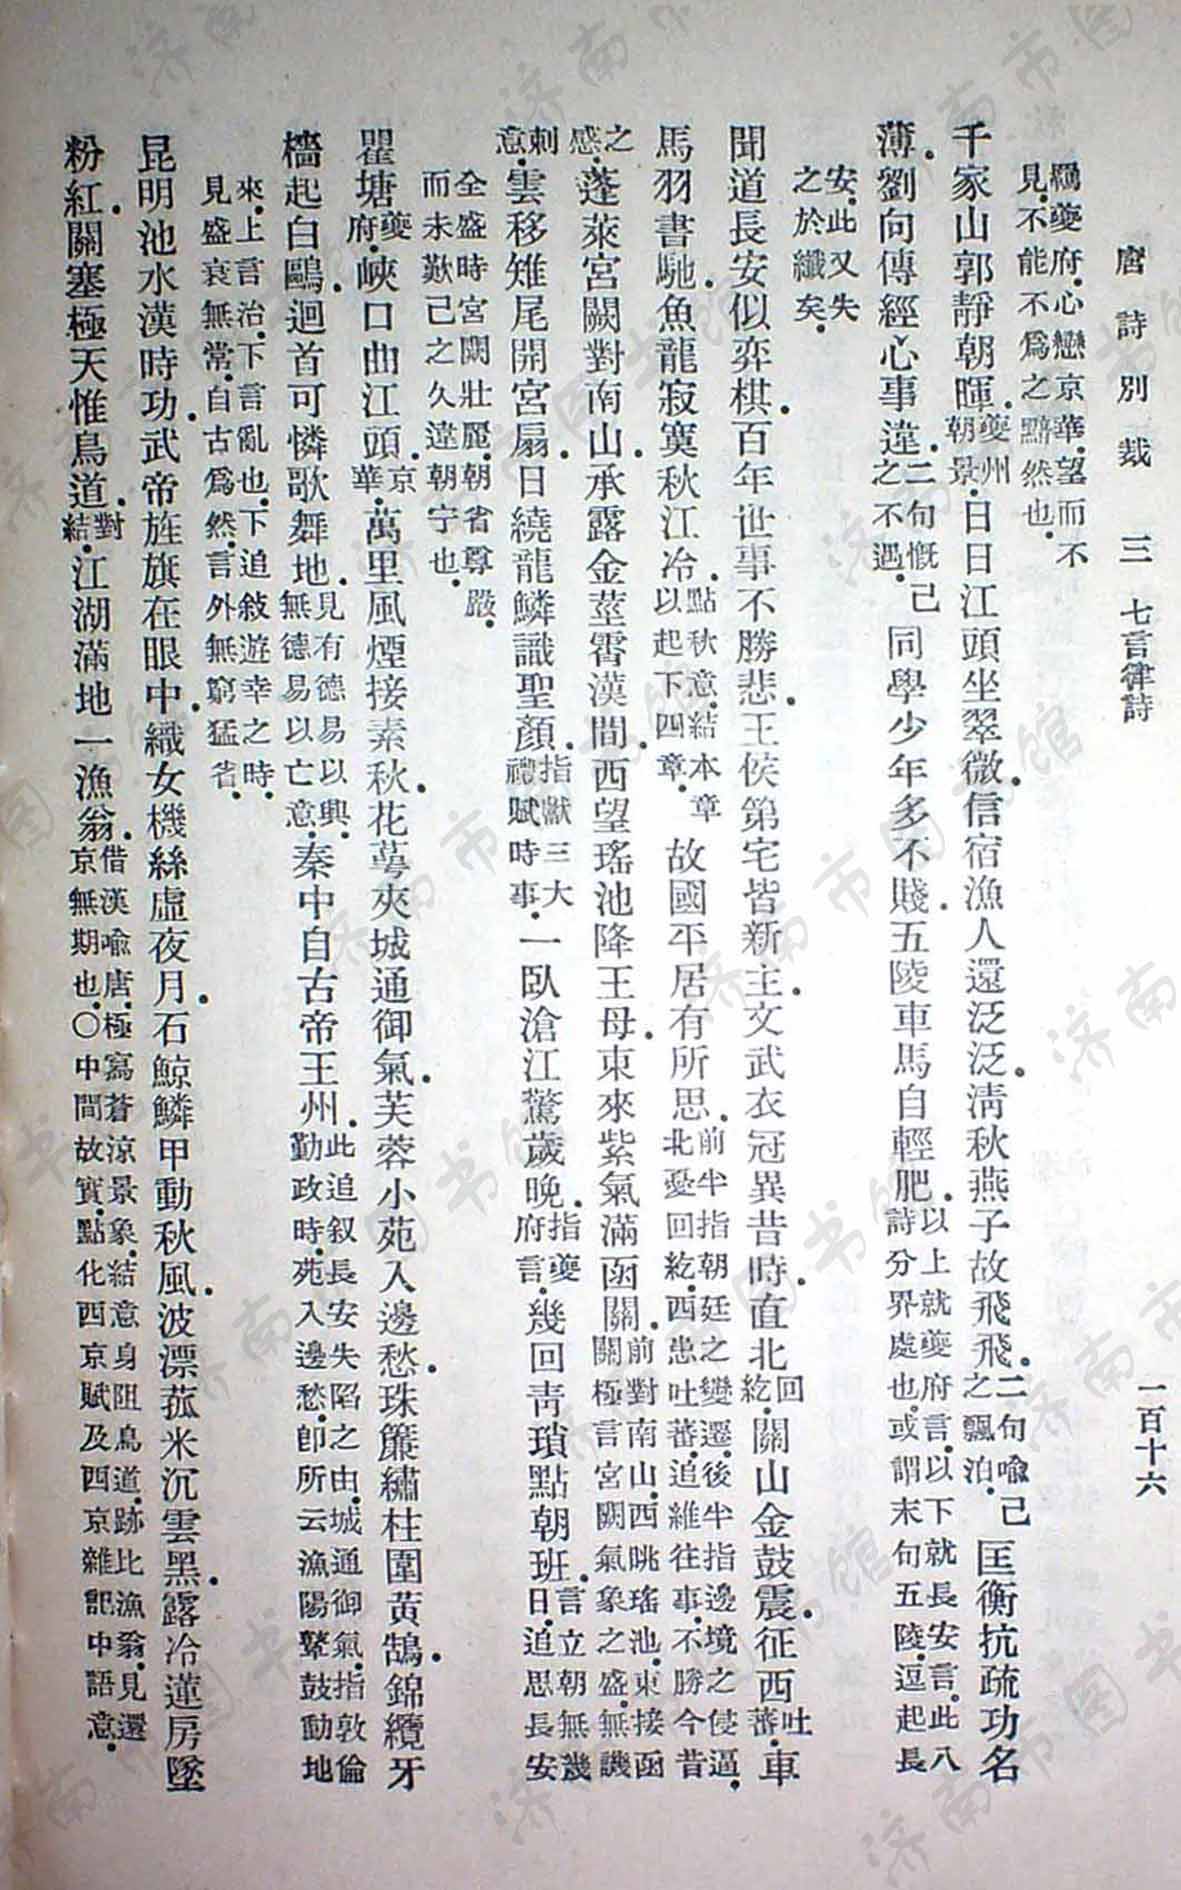 唐詩別裁 三 七言律詩 一百十六
羈夔府.心戀京華.望而不見.不能不爲之黯然也.
千家山郭靜朝暉.夔州朝景.日日江頭坐翠微.信宿漁人還泛泛.淸秋燕子故飛飛.二句喻己之飄泊.匡衡抗疏功名
薄.劉向傳經心事違.二句慨己之不遇.同學少年多不賤.五陵車馬自輕肥.以上就夔府言.以下就長安言.此八詩分界處也.或謂末句五陵.逗起長
安.此又失之於纖矣.
聞道長安似弈棋.百年世事不勝悲.王侯第宅皆新主.文武衣冠異昔時.直北回紇.關山金鼓震.征西吐蕃.車
馬羽書馳.魚龍寂寞秋江冷.點秋意.結本章以起下四章.故國平居有所思.前半指朝廷之變遷.後半指邊境之侵逼.北憂回紇.西患吐蕃.追維往事.不勝今昔
之感.蓬萊宮闕對南山.承露金莖霄漢間.西望瑤池降王母.東來紫氣滿函關.前對南山.西眺瑤池.東接函關.極言宮闕氣象之盛.無譏
刺意.雲移雉尾開宮扇.日繞龍鱗識聖顏.指獻三大禮賦時事.一臥滄江驚歲晚.指夔府言.幾回靑瑣點朝班.言立朝無幾日.追思長安
全盛時宮闕壯麗.朝省尊嚴.而未歎己之久違朝宁也.
瞿塘夔府.峽口曲江頭.京華.萬里風煙接素秋.花萼夾城通御氣.芙蓉小苑入邊愁.珠簾繡柱圍黃鵠.錦纜牙
檣起白鷗.迴首可憐歌舞地.見有德易以興.無德易以亡意.秦中自古帝王州.此追叙長安失陷之由.城通御氣.指敦倫勤政時.苑入邊愁.卽所云漁陽鼙鼓動地
來.上言治.下言亂也.下追敍遊幸之時.見盛衰無常.自古爲然.言外無窮猛省.
昆明池水漢時功.武帝旌旗在眼中.織女機絲虛夜月.石鯨鱗甲動秋風.波漂菰米沉雲黑.露冷蓮房墜
粉紅.關塞極天惟鳥道.對結.江湖滿地一漁翁.借漢喻唐.極寫蒼涼景象.結意身阻鳥道.跡比漁翁.見還京無期也.○中間故實.點化西京賦及西京雜記中語意.